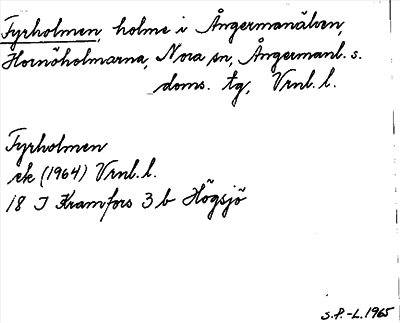 Fyrholmen, holme i Ångermanälven,
Hornöholmarna, Nora sn, Ångermanl. s.
doms. tg, Vrnl. l.
Fyrholmen
ek (1964) Vrnl. l.
18 J Kramfors 3 b Högsjö
S.P.-L. 1965